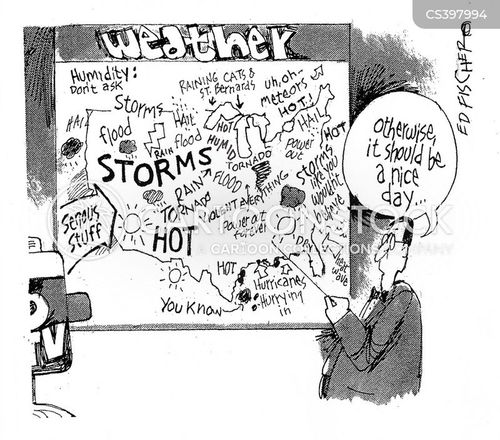 CS397994
weather
ED FISCHER ©
Humidity:
Don't ask
RAINING CATS &
ST. BERNARDS
uh, oh-
meteors
HOT!
Storms
HAIL
HAIL
HAIL
flood
RAIN
flood
HOT
HUMID
HOT
power
out
TORNADO
STORMS
storms
like you
wouldn't
believe
RAIN
FLOOD
EVERYTHING
TORNADO
HOT
power out
Serious
Stuff
HOT
heat
wave
Hurricanes
Hurrying
in
You Know
TV
otherwise,
it should be
a nice
day...
CARTOONSTOCK